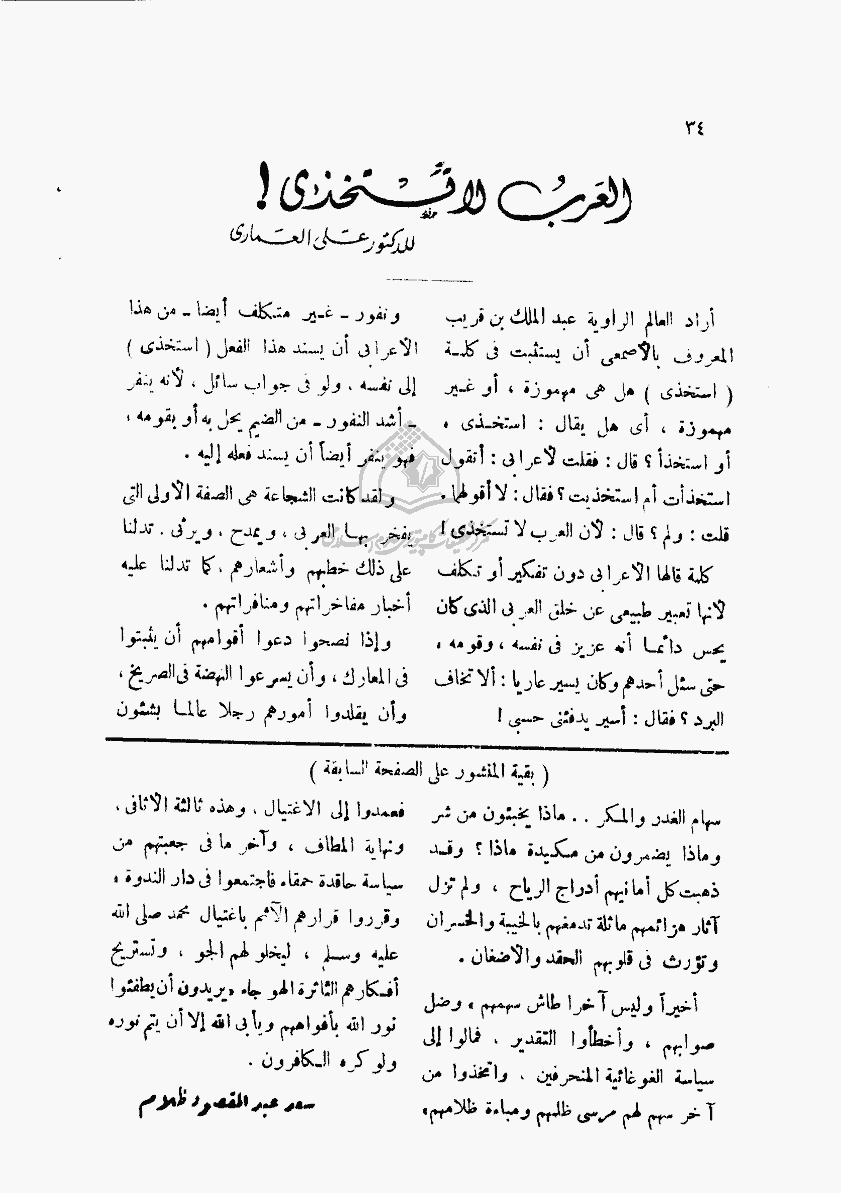 ٣٤
العرب لا تستخذى !
للدكتور على العمارى
أراد العالم الراوية عبد الملك بن قريب
المعروف بالأصمعى أن يستثبت فى كلمة
( استخذى ) هل هى مهموزة ، أو غير
مهموزة ، أى هل يقال : استخذى ،
أو استخذأ ؟ قال : فقلت لأعرابى : أتقول
استخذأت أم استخذيت ؟ فقال : لا أقولها .
قلت : ولم ؟ قال : لأن العرب لا تستخذى !
كلمة قالها الاعرابى دون تفكير أو تكلف
لأنها تعبير طبيعى عن خلق العربى الذى كان
يحس دائما أنه عزيز فى نفسه ، وقومه ،
حتى سئل أحدهم وكان يسير عاريا : ألا تخاف
البرد ؟ فقال : أسير يدفئنى حسبى !
ونفور ـ غير متكلف أيضا ـ من هذا
الأعرابى أن يسند هذا الفعل ( استخذى )
إلى نفسه . ولو فى جواب سائل ، لأنه ينفر
ـ أشد النفور ـ من الضيم يحل به أو بقومه ،
فهو ينفر أيضاً أن يسند فعله إليه .
ولقد كانت الشجاعة هى الصفة الأولى التى
يفخر بها العربى ، ويمدح ، ويرثى . تدلنا
على ذلك خطبهم وأشعارهم ، كما تدلنا عليه
أخبار مفاخراتهم ومنافراتهم .
وإذا نصحوا دعوا أقوامهم أن يثبتوا
فى المعارك ، وأن يسرعوا النهضة فى الصريخ ،
وأن يقلدوا أمورهم رجلا عالما بشئون
( بقية المنشور على الصفحة السابقة )
سهام الغدر والمكر . . ماذا يخبئون من شر
وماذا يضمرون من مكيدة ماذا ؟ وقد
ذهبت كل أمانيهم أدراج الرياح ، ولم تزل
آثار هزائمهم ماثلة تدمغهم بالخيبة والخسران
وتؤرث فى قلوبهم الحقد والأضغان .
أخيراً وليس آخرا طاش سهمهم ، وضل
صوابهم ، وأخطأوا التقدير . فمالوا إلى
سياسة الغوغائية المنحرفين . واتخذوا من
آخر سهم لهم مرسى ظلهم ومباءة ظلامهم،
فعمدوا إلى الاغتيال . وهذه ثالثة الأثافى .
ونهاية المطاف ، وآخر ما فى جعبتهم من
سياسة حاقدة حمقاء فاجتمعوا فى دار الندوة ،
وقرروا قرارهم الآثم باغتيال محمد صلى الله
عليه وسلم ، ليخلو لهم الجو . وتستريح
أفكارهم الثائرة الهوجاء «يريدون أن يطفئوا
نور الله بأفواههم ويأبى الله إلا أن يتم نوره
ولو كره الكافرون .
سعد عبد المقصود ظلام